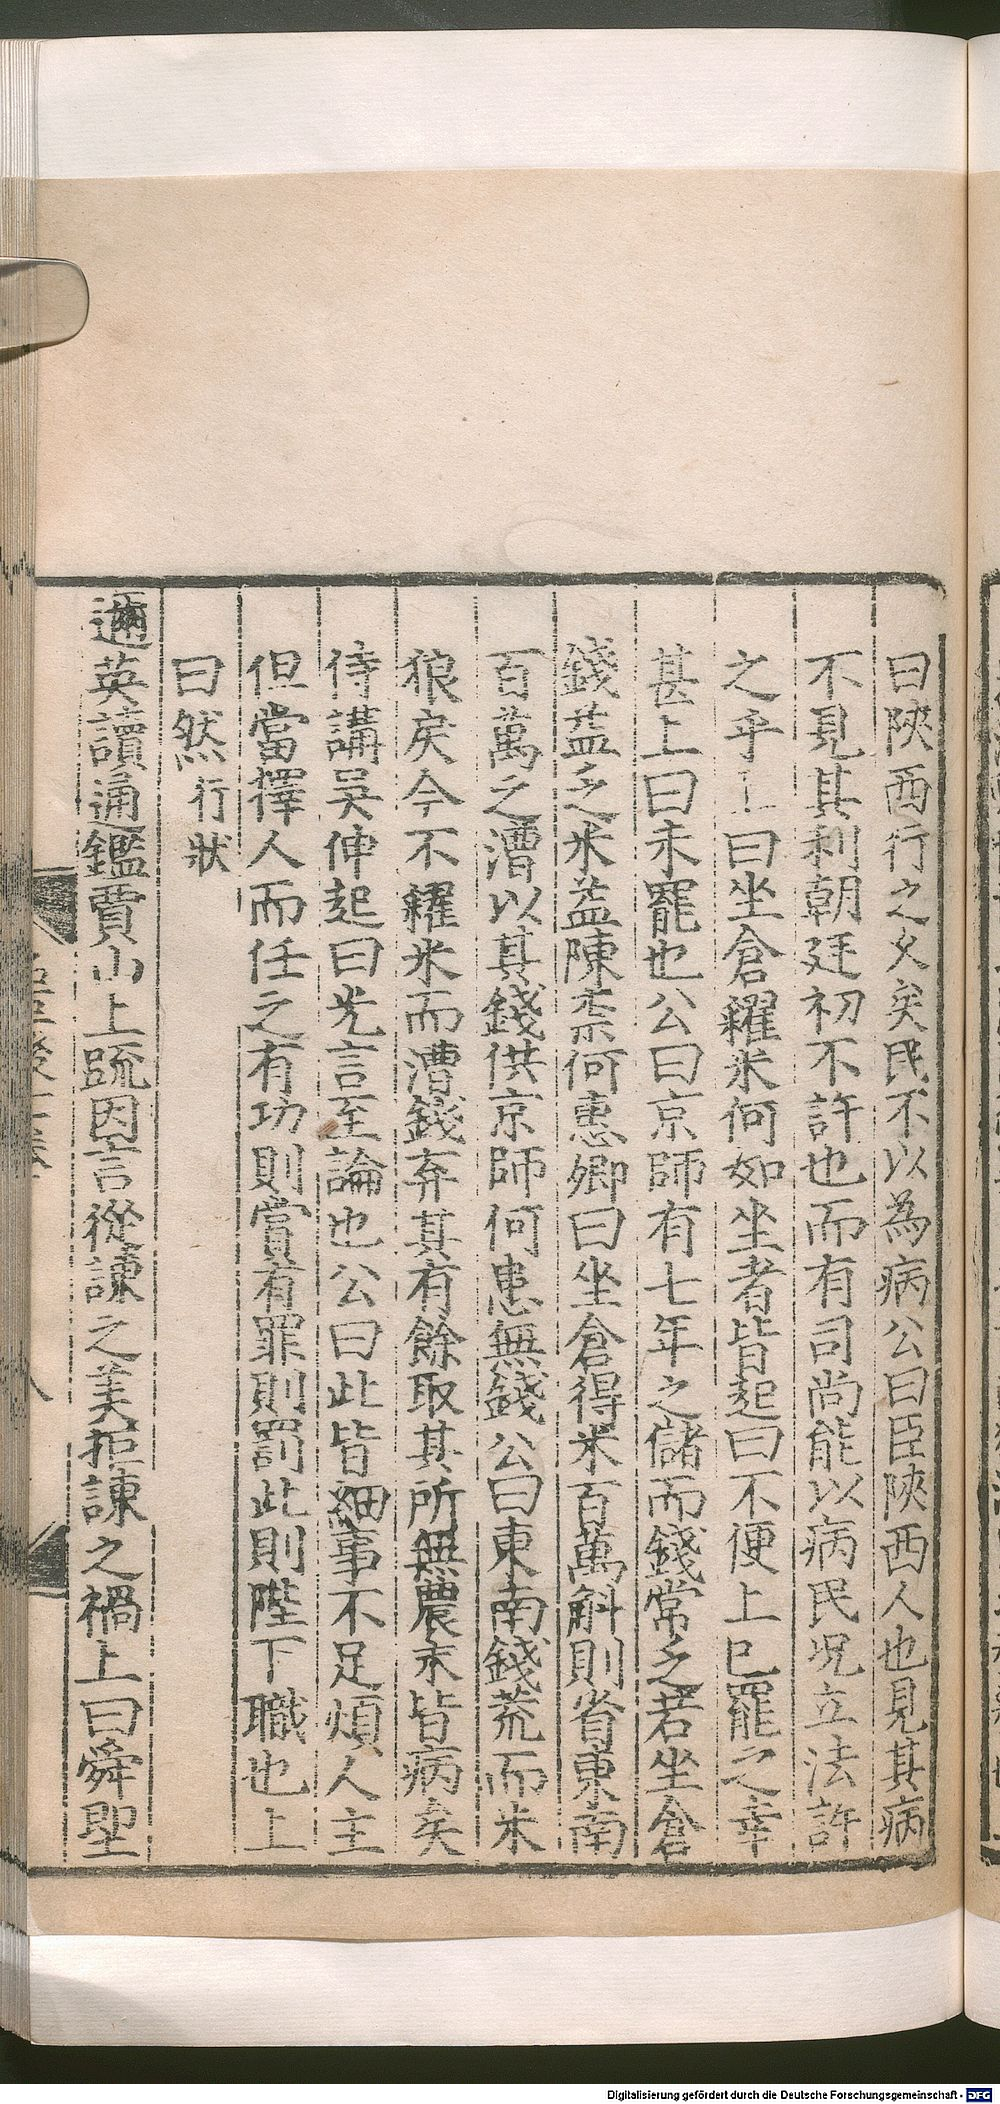 曰陝西行之乆矣民不以為病公曰臣陝西人也見其病
不見其利朝廷初不許也而有司尚能以病民况立法許
之乎上曰坐倉糴米何如坐者皆起曰不便上已罷之幸
甚上曰未罷也公曰京師有七年之儲而錢常乏若坐倉
錢益乏米益陳柰何惠卿曰坐倉得米百萬斛則省東南
百萬之漕以其錢供京師何患無錢公曰東南錢荒而米
狼戾今不糴米而漕錢弃其有餘取其所無農末皆病矣
侍講吳伸起曰光言至論也公曰此皆細事不足煩人主
但當擇人而任之有功則賞有罪則罰此則陛下職也上
曰然行狀
邇英讀通鑑賈山上䟽因言從諫之美拒諫之禍上曰舜聖
Digitalisierung gefördert durch die Deutsche Forschungsgemeinschaft - DFG